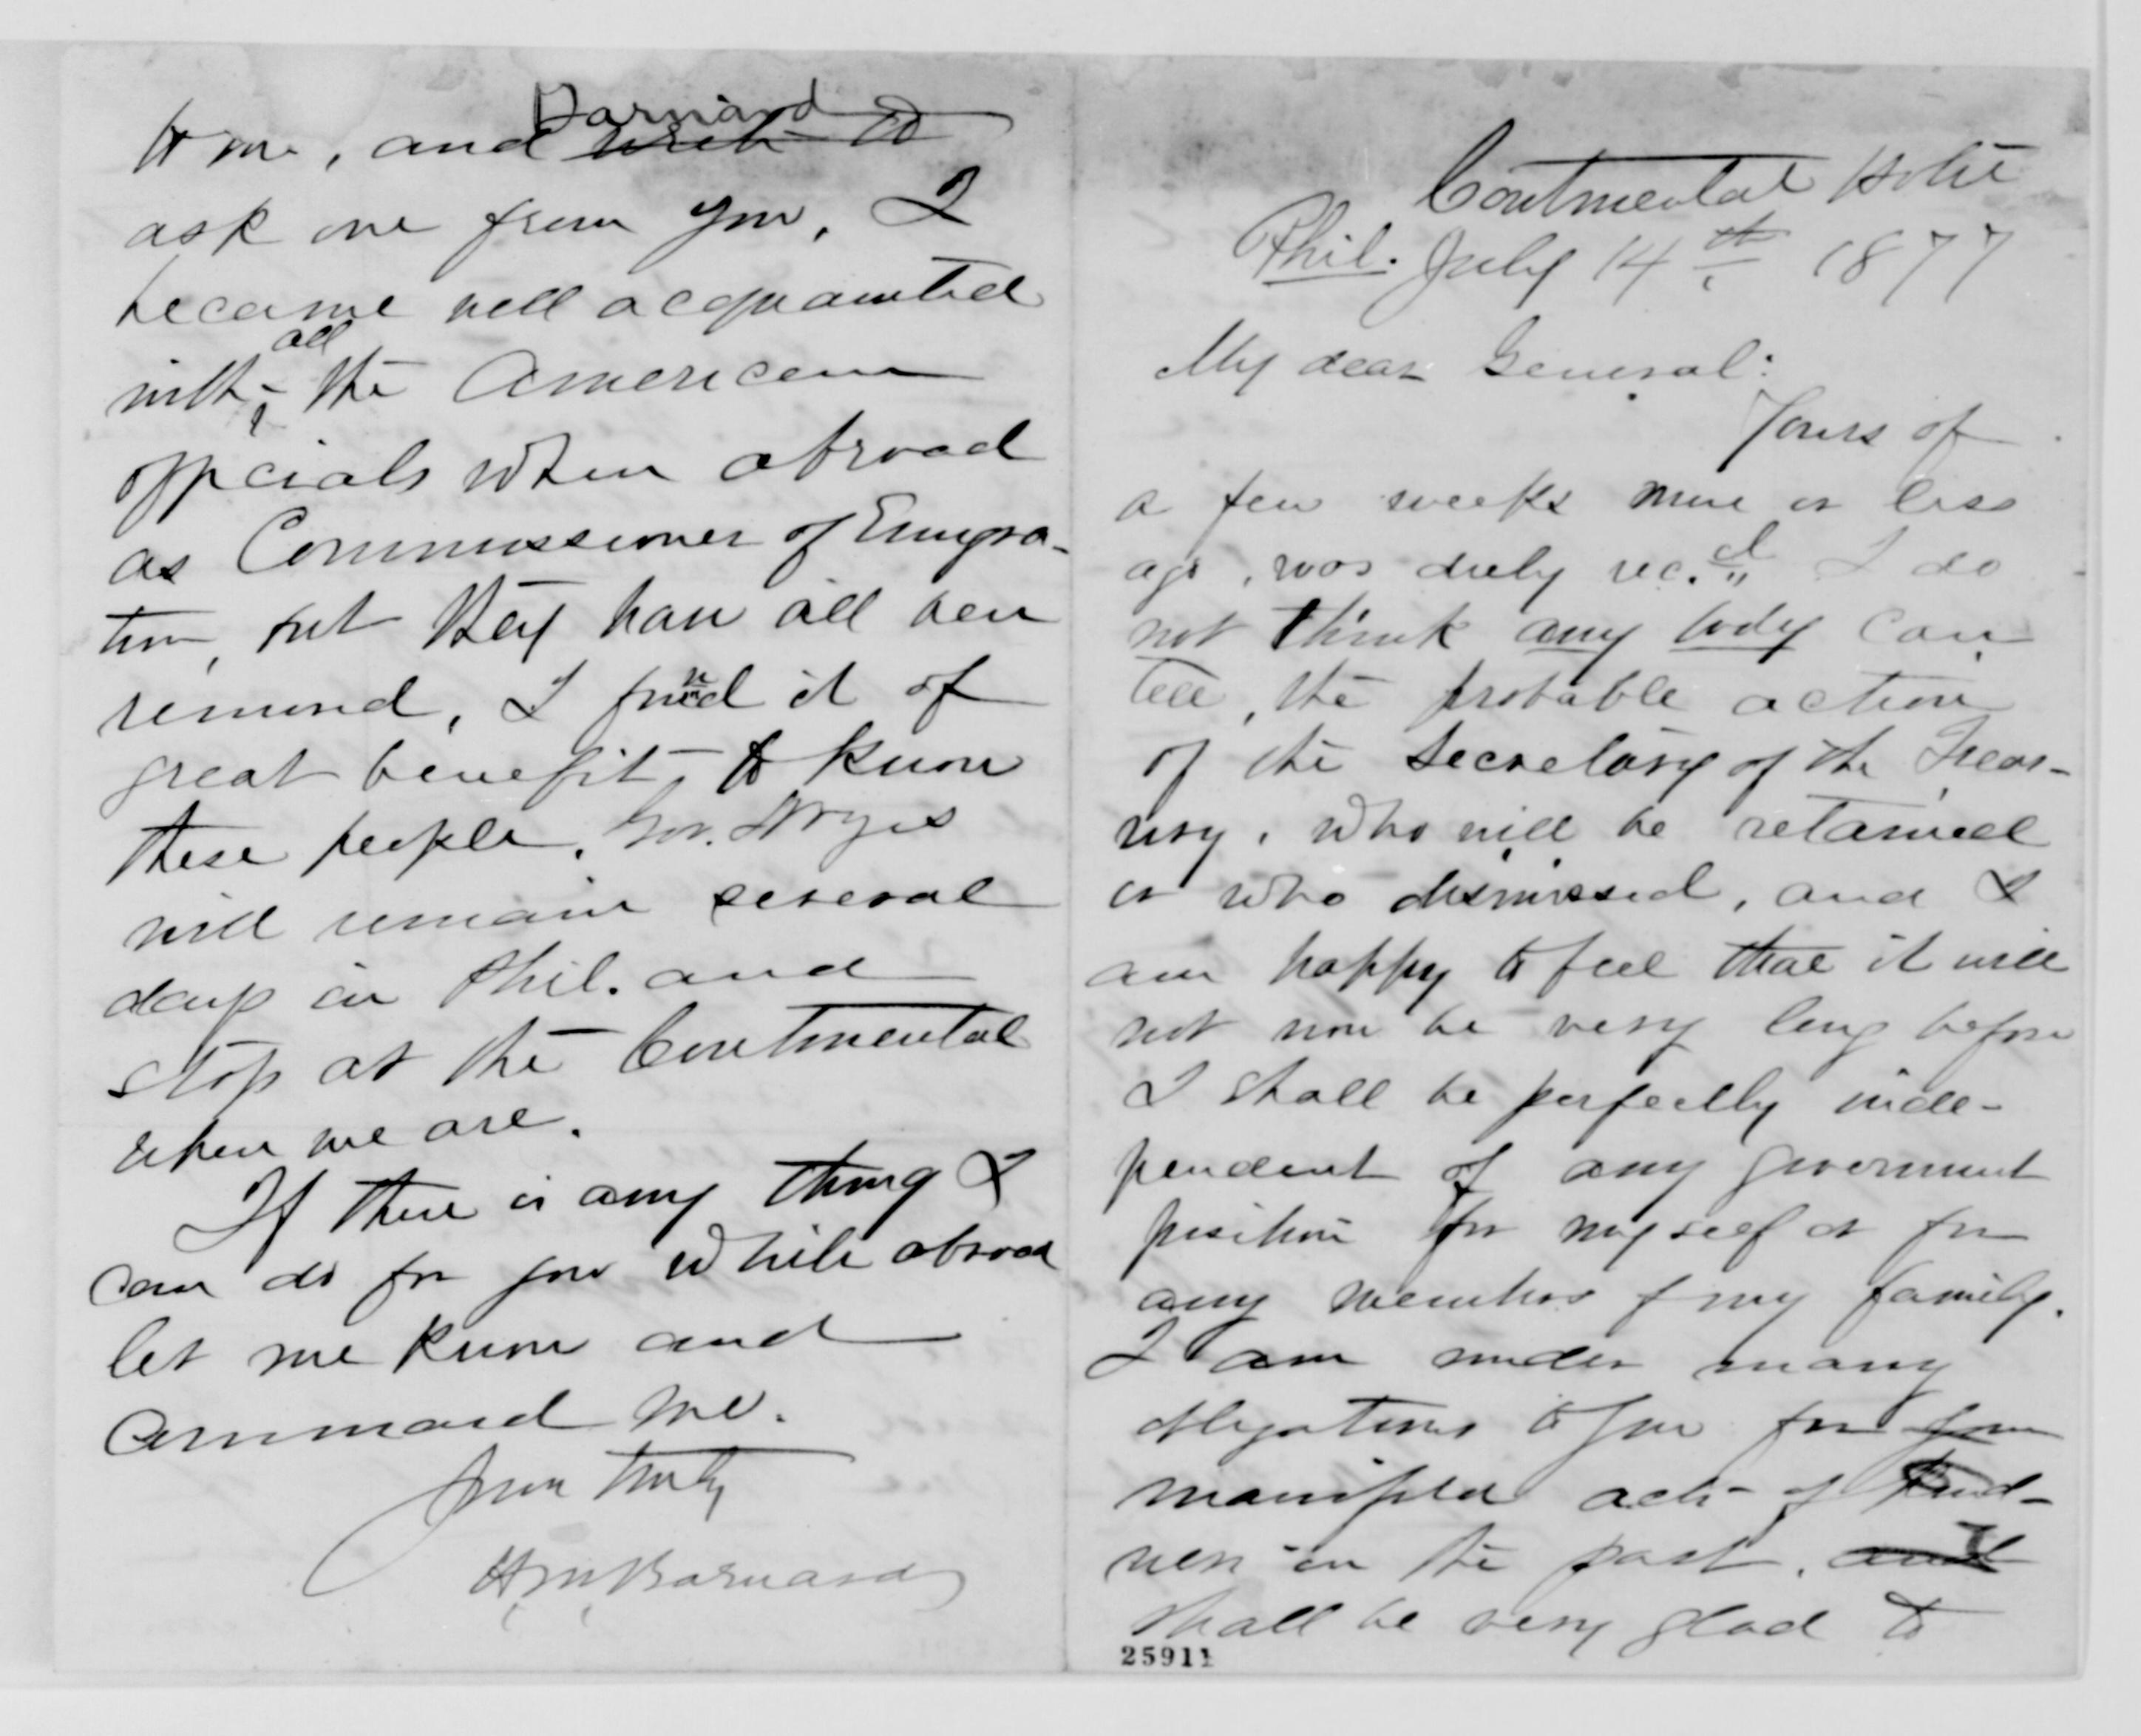 Continental Hotel
Phil. July 14th 1877
My dear General:
Yours of
a few weeks more or less
ago, was duly rec.d I do
not think any body can
tell, the probable action
of the Secretary of the Treas-
ury, who will be retained
or who dismissed, and I
am happy to feel that it will
not now be very long before
I shall be perfectly inde-
pendent of any government
position for myself or for
any member of my family.
I am under many
obligations to you for your
manifold acts of kind-
ness in the past. and I
shall be very glad to
25911
Barnard
to me, and wish to
ask one from you, I
became well acquainted
with all the American
officials when abroad
as Commissioner of Emigra-
tion, but they have all been
removed, I found it of
great benefit, to know
these people. Gov.
will remain several
days in Phil. and
stop at the Continental
where we are.
If there is any thing I
can do for you while abroad
let me know and
command me.
Yours truly
H. M. Barnard